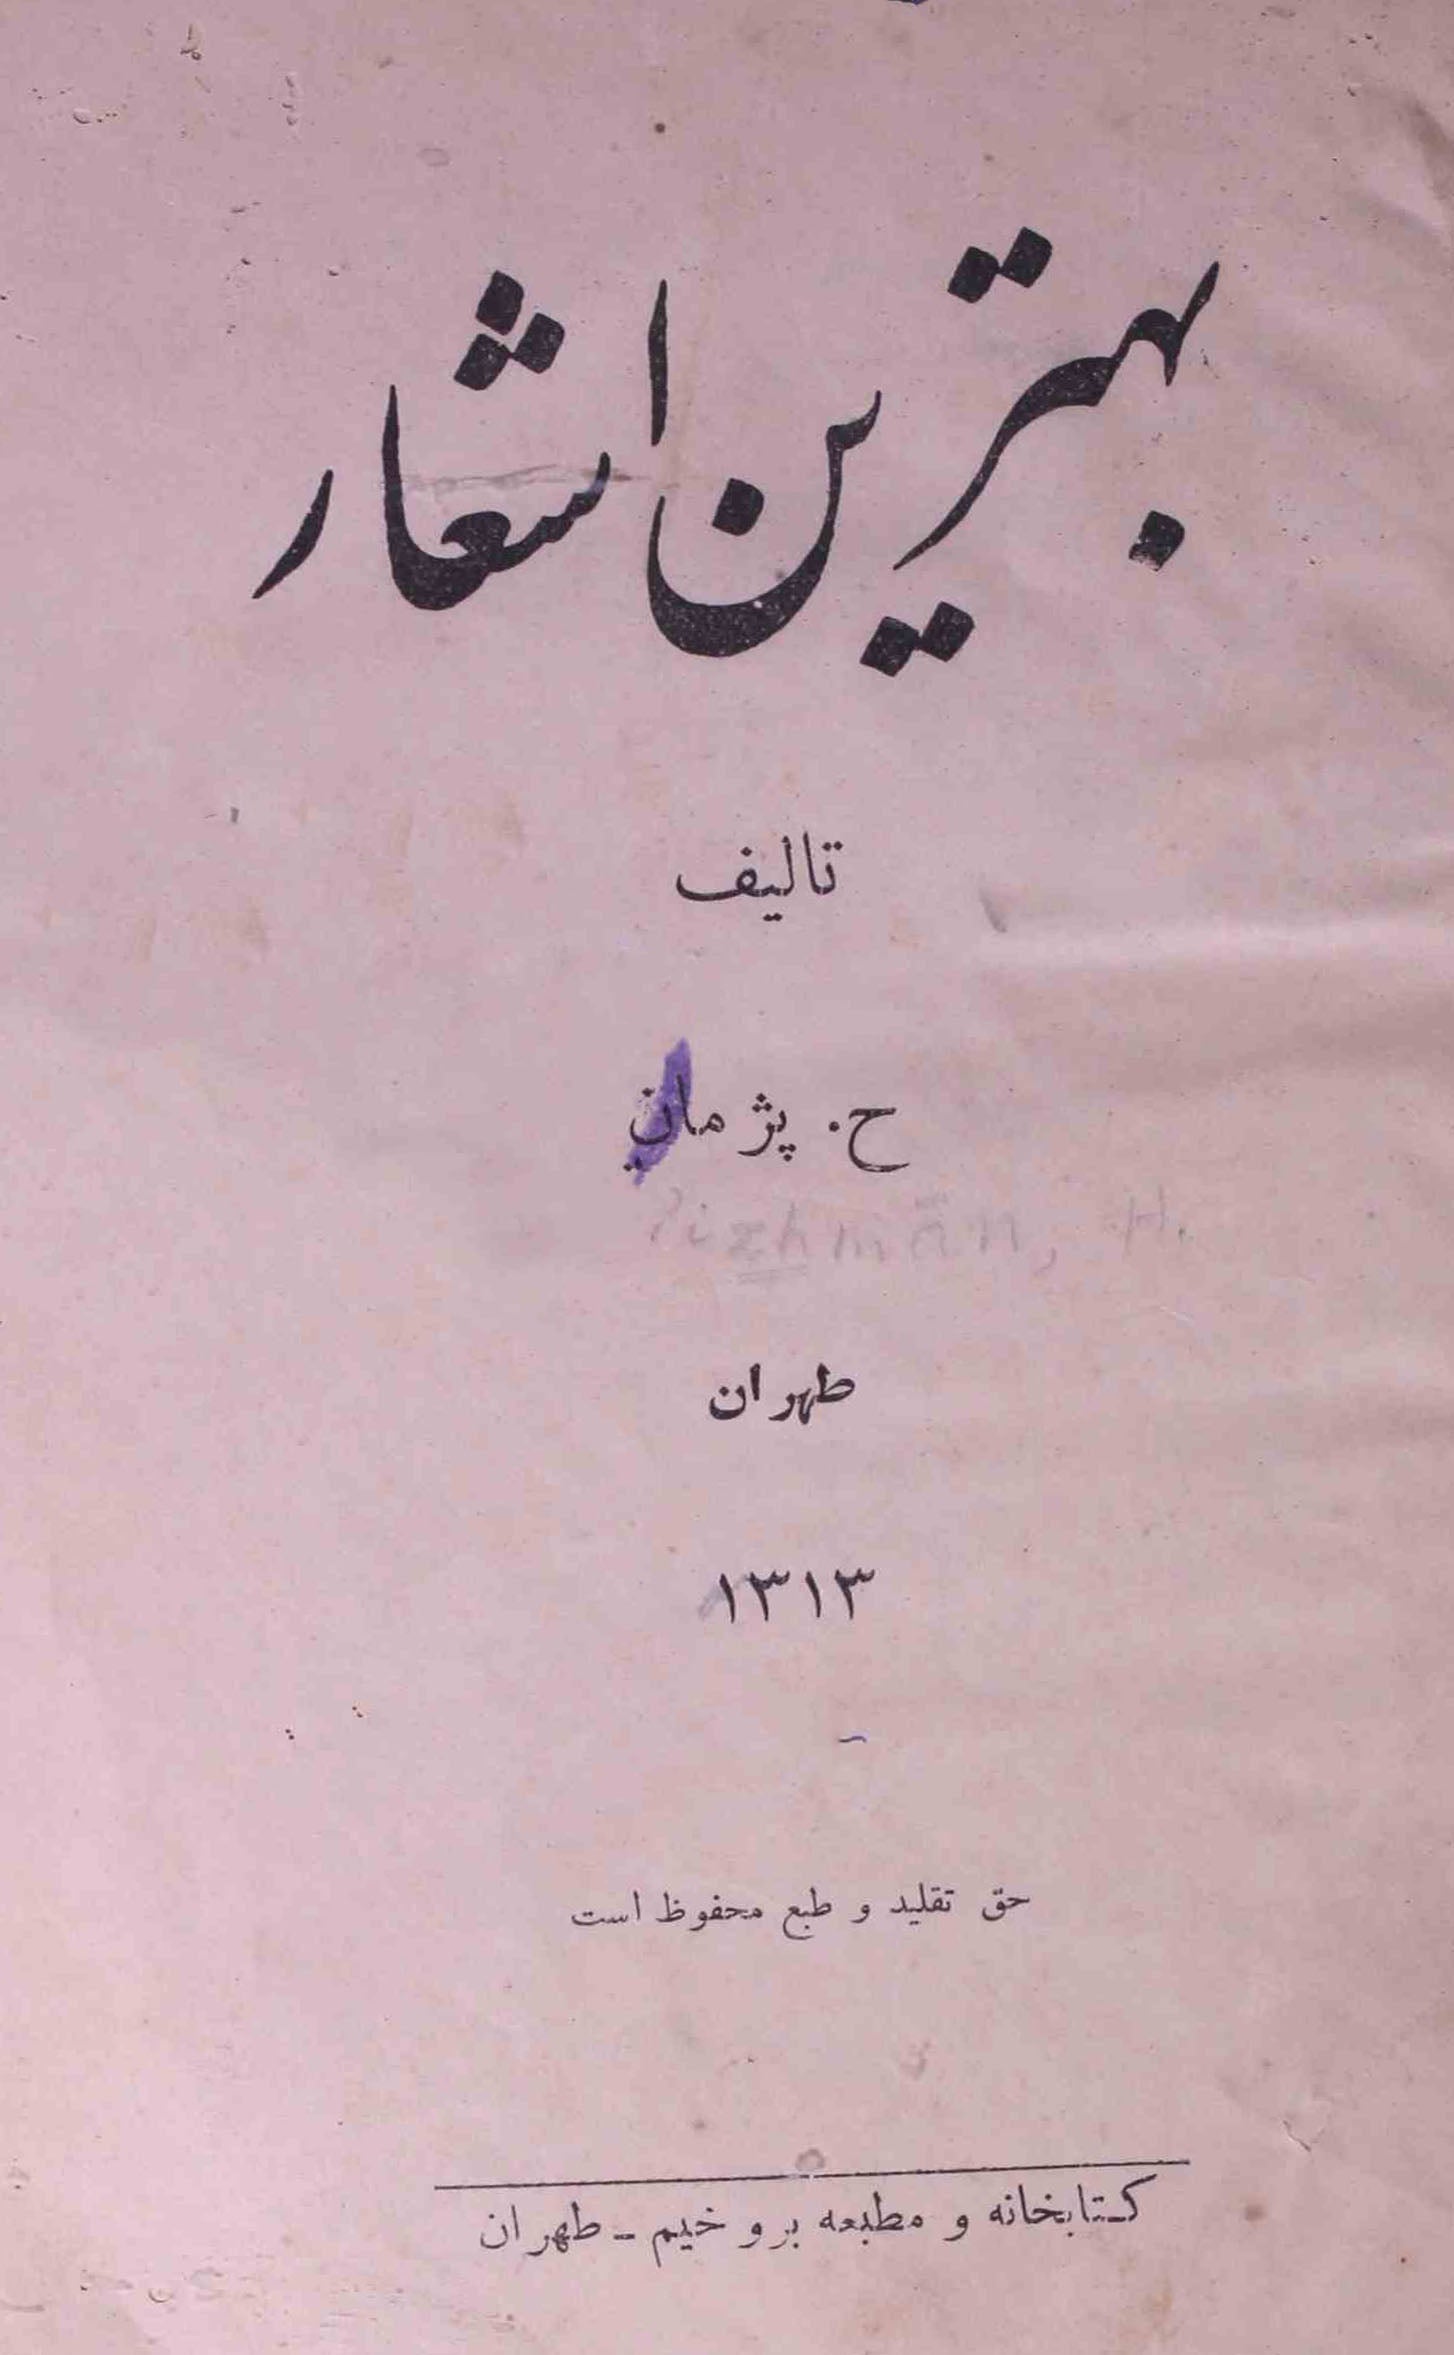 بهترین اشعار
تالیف
ح. پژمان
Pizhmān, H.
طهران
۱۳۱۳
حق تقلید و طبع محفوظ است
کتابخانه و مطبعه بروخیم - طهران